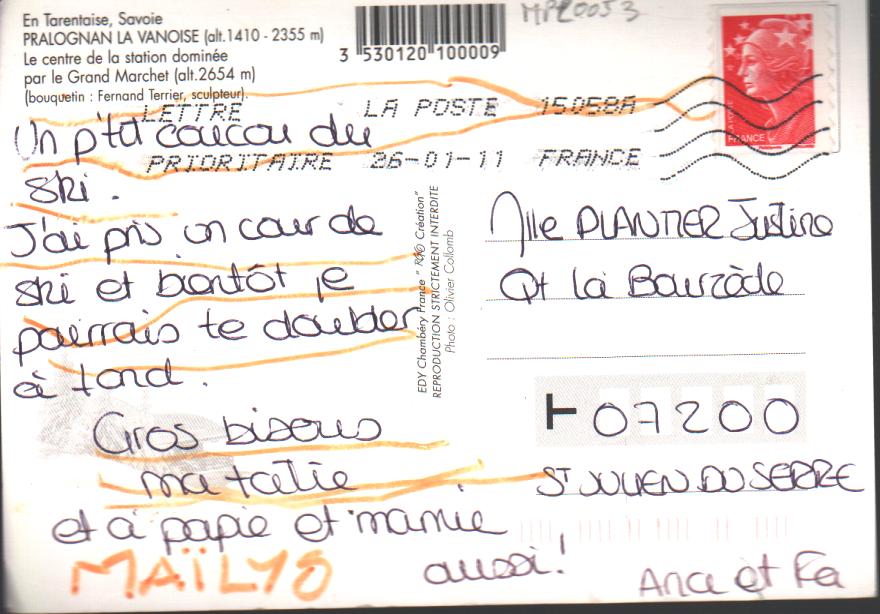 En Tarentaise, Savoie
PRALOGNAN LA VANOISE (alt.1410 - 2355 m)
Le centre de la station dominée
par le Grand Marchet (alt.2654 m)
(bouquetin : Fernand Terrier, sculpteur).
3 530120 100009
MPL0053
LETTRE LA POSTE 15058A
PRIORITAIRE 26-01-11 FRANCE
FRANCE
Un p'tit coucou du
ski.
J'ai pris un cour de
ski et bientôt je
pourrais te doubler
à fond.
Gros bisous
ma tatie
et à papie et mamie
aussi!
MAÏLYS
EDY Chambéry France " R©© Création"
REPRODUCTION STRICTEMENT INTERDITE
Photo : Olivier Collomb
Mlle PLANTIER Justine
Qt la Bourzède
07200
ST JULIEN DU SERRE
et Fa